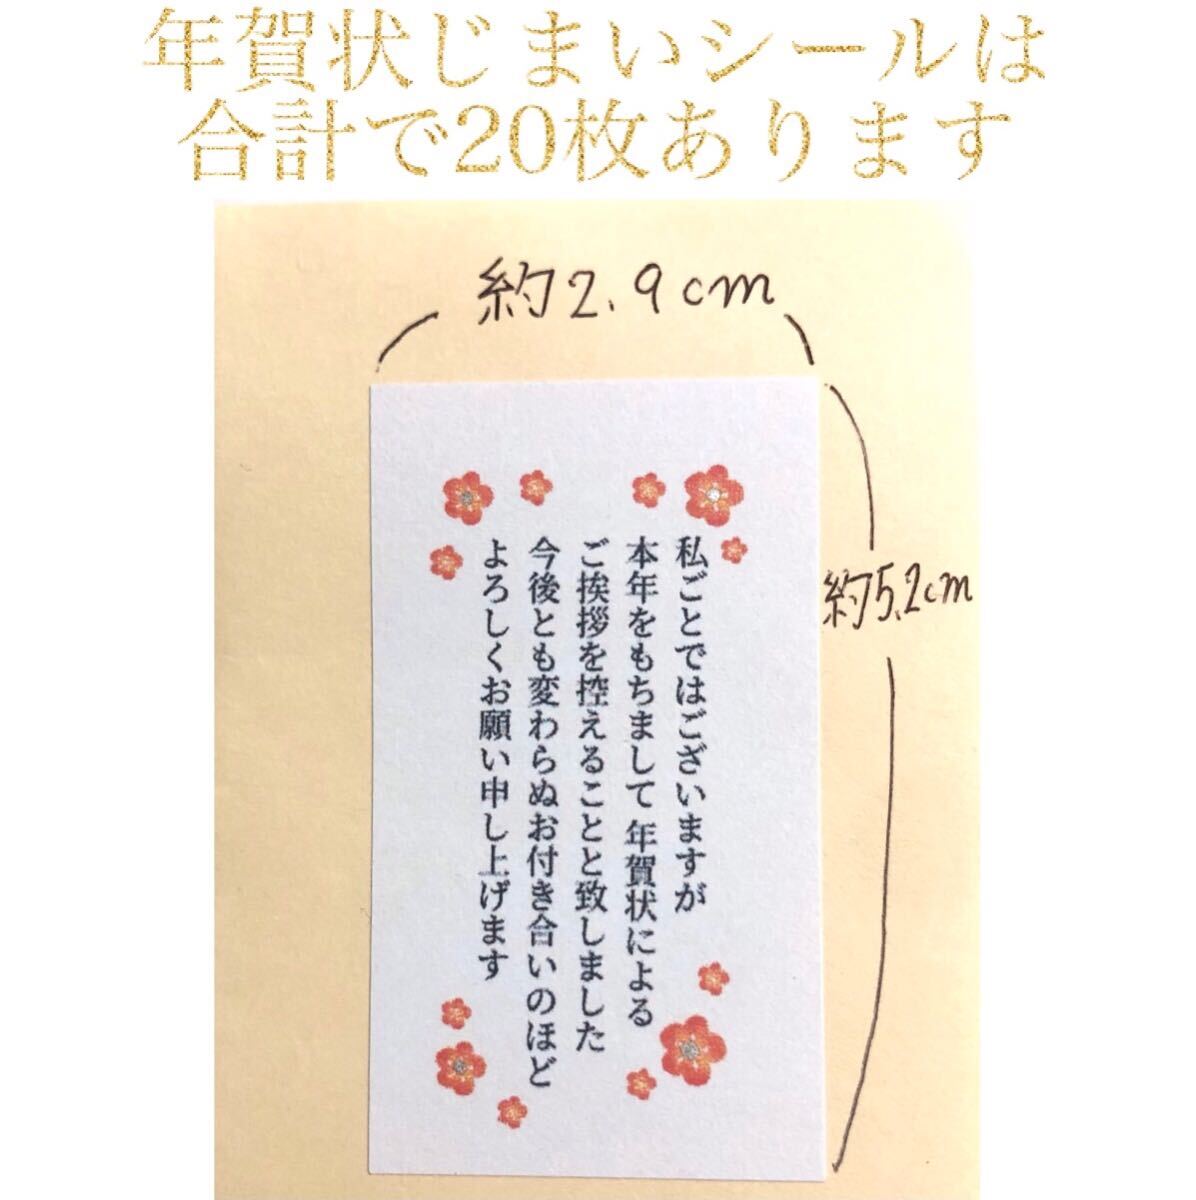 年賀状じまいシールは
合計で20枚あります
約2.9cm
約5.2cm
私ごとではございますが
本年をもちまして 年賀状による
ご挨拶を控えることと致しました
今後とも変わらぬお付き合いのほど
よろしくお願い申し上げます